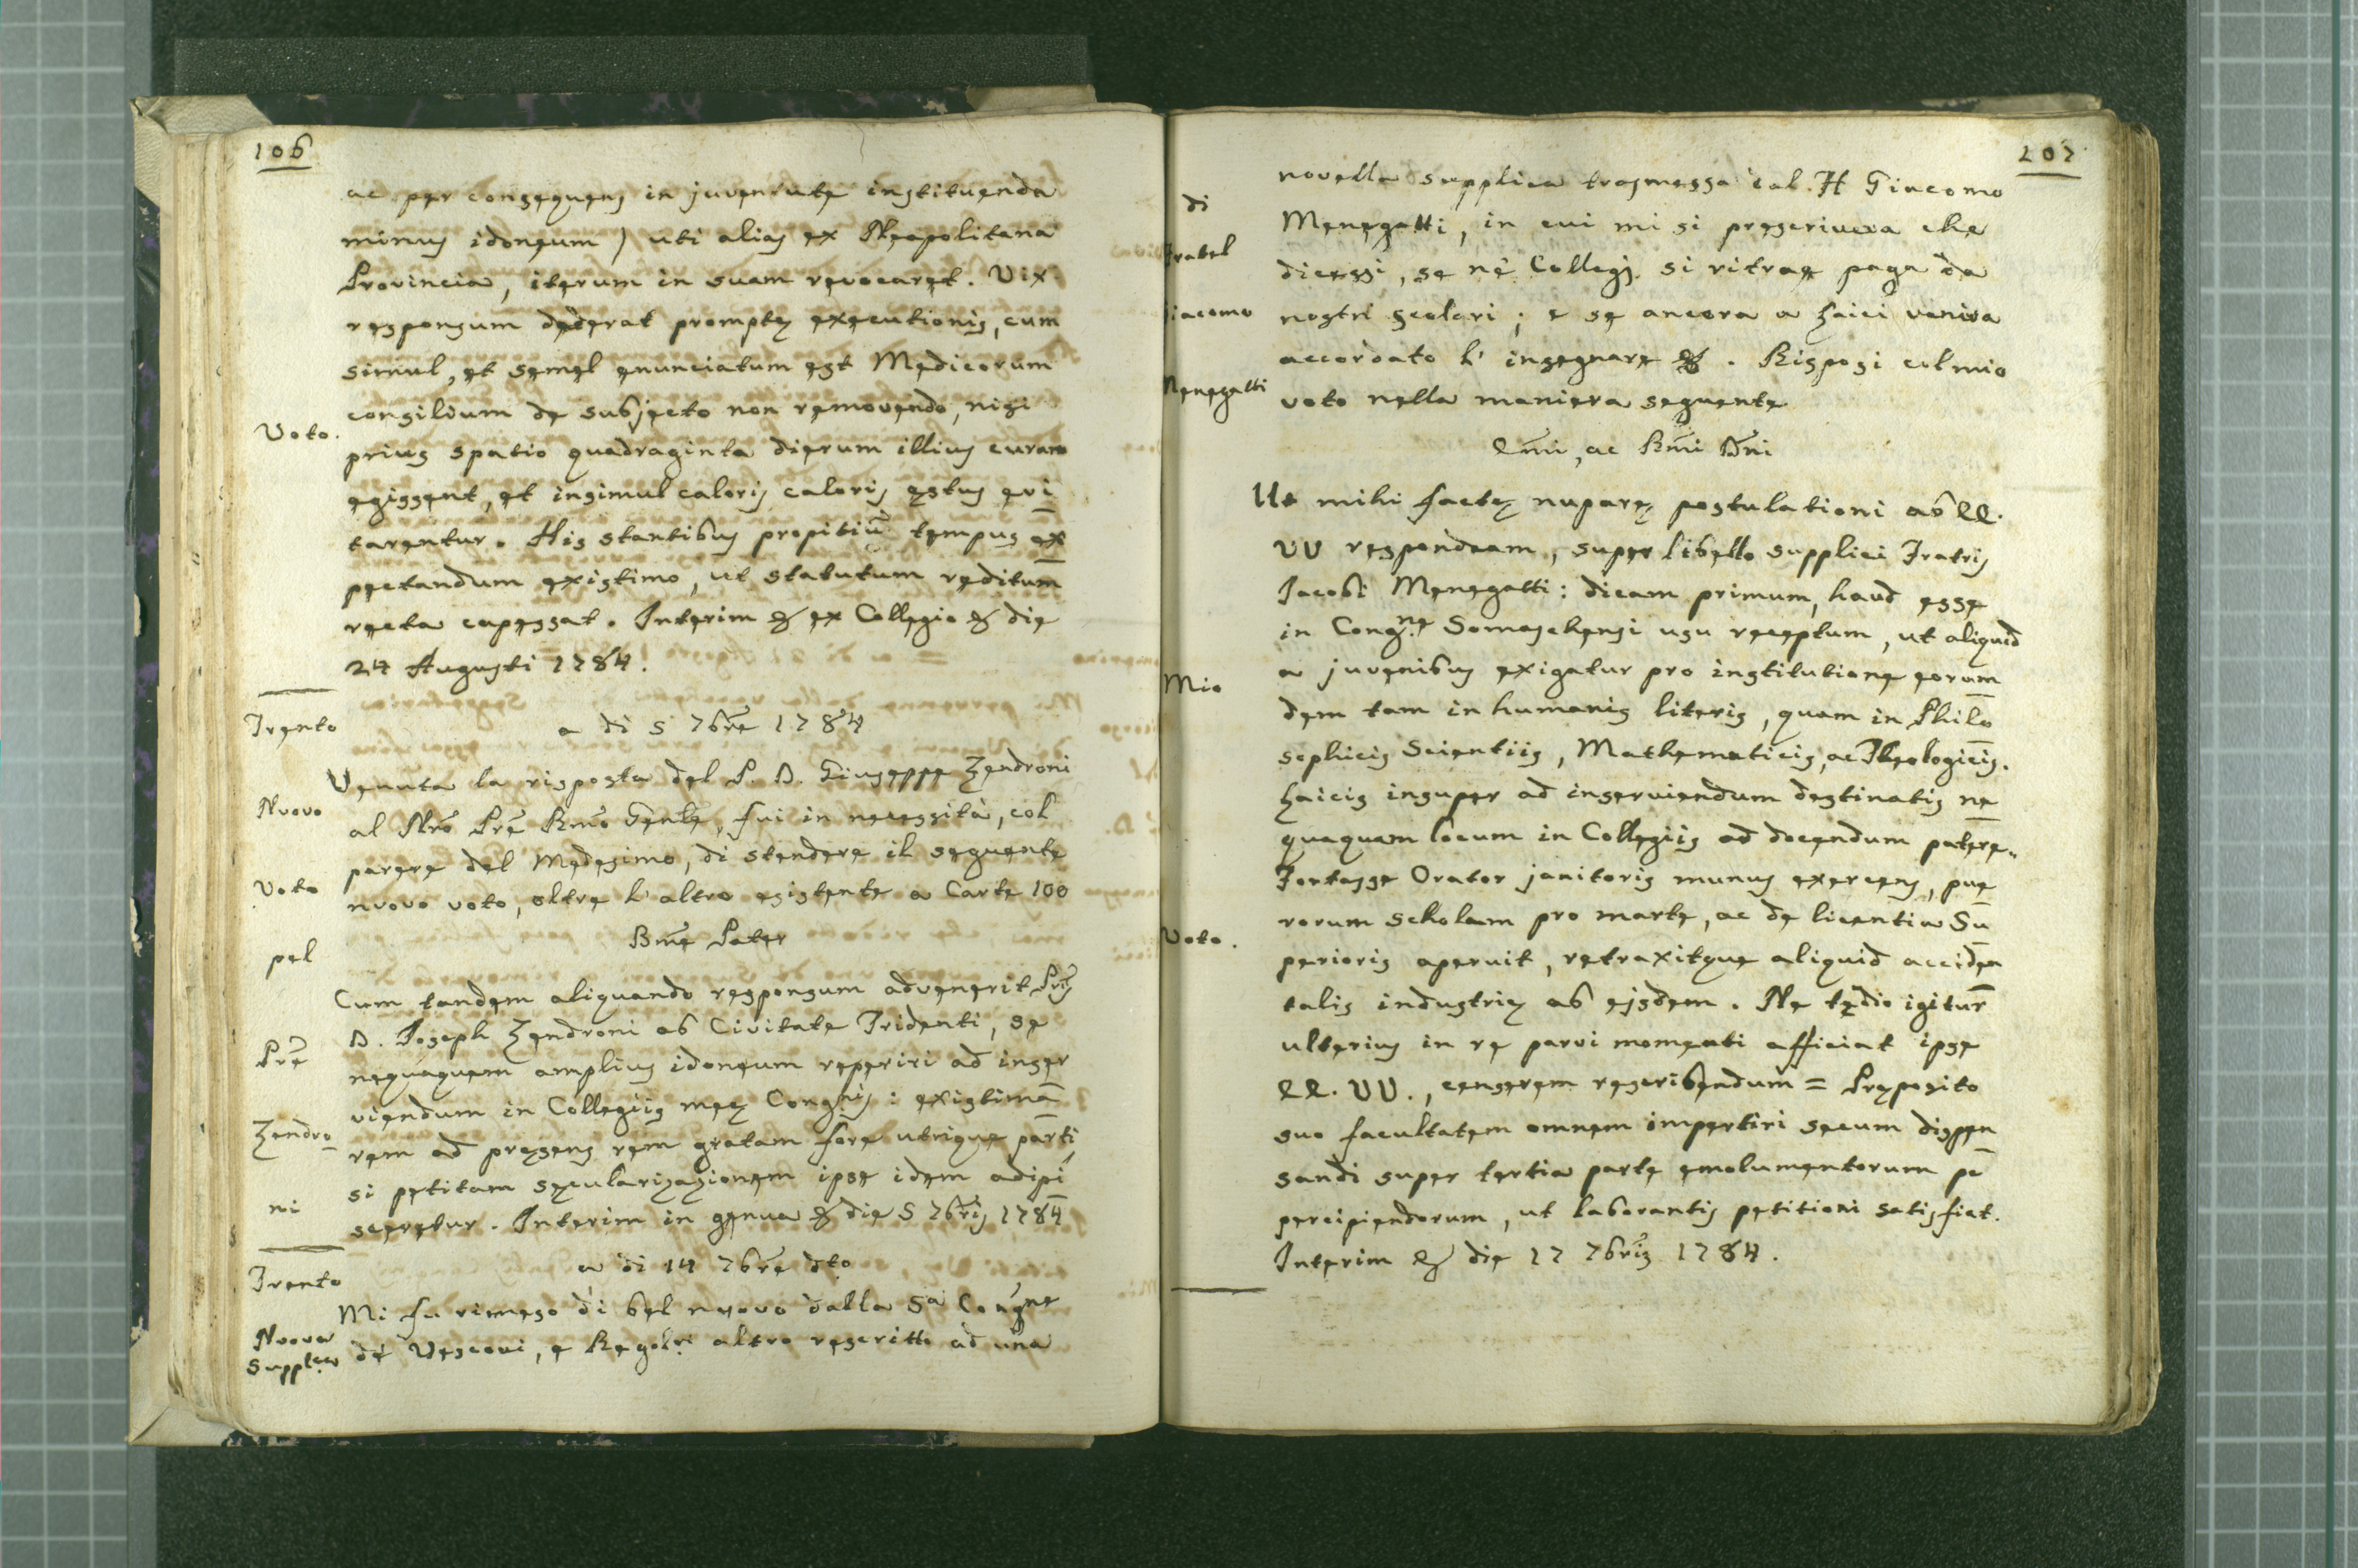 106
ac per consequens in juventute instituenda
minus idoneum) uti alias ex Neapolitana
Provincia, iterum in suam revocaret. Vix
responsum dederat promptę executionis, cum
simul, et semel enunciatum est Medicorum
consilium de subjecto non removendo, nisi
Voto.
prius spatio quadraginta dierum illius curam
egissent, et insimul caloris caloris ęstus evi
tarentur. His stantibus propitiū tempus ex
pectandum existimo, ut statutum reditum
recta capessat. Interim & ex Collegio & die
24 Augusti 1784.
Trento
a di 5 7bre 1784
Venuta la risposta del P. D. Giuseppe Zendroni
Nuovo
al Nrō Prē Rmō Genle, fui in necessità, col
parere del Medesimo, di stendere il seguente
Voto
nuovo voto, oltre l'altro esistente a Carte 100
Bmē Pater
pel
Cum tandem aliquando responsum advenerit Pris
D. Joseph Zendroni ab Civitate Tridenti, se
Prē
nequaquam amplius idoneum reperiri ad inser
viendum in Collegiis meę Congnis: existima
Zendro
rem ad pręsens rem gratam fore utrique parti,
si petitam sęcularizazionem ipse idem adipi
ni
sceretur. Interim in genua & die 5 7bris 1784
a di 14 7bre dto
Trento
Mi fu rimeso di bel nuovo dalla Sa Congne
Nuova
Supplica
dè Vescovi, e Regolri altro rescritto ad una
107
novella supplica trasmessa col. H Giacomo
di
Menegatti, in cui mi si prescriveva che
Fratel
dicessi, se nè Collegj si ritrae paga da
Giacomo
nostri scolari; e se ancora a Laici veniva
accordato l'insegnare &. Risposi col mio
Menegatti
voto nella maniera seguente
Emī, ac Rmī Dnī
Ut mihi factę nuparę postulationi ab EE.
VV respondeam, super libello supplici Fratris
Jacobi Menegatti: dicam primum, haud esse
in Congne Somaschensi usu receptum, ut aliquid
Mio
a juvenibus exigatur pro institutione eorum
dem tam in humanis literis, quam in Philo
sophicis Scientiis, Mathematicis, ac Theologicis.
Laicis insuper ad inserviendum destinatis ne
quaquam locum in Collegiis ad docendum patere.
Fortasse Orator janitoris munus exercens, pue
rorum scholam pro marte, ac de licentia Su
Voto.
perioris aperuit, retraxitque aliquid acciden
talis industrię ab ejsdem. Ne tędio igitur
ulterius in re parvi momenti afficiat ipse
EE. VV., censerem rescribendum = Pręposito
suo facultatem omnem impertiri secum dispen
sandi super tertia parte emolumentorum pe
percipiendorum, ut laborantis petitioni satisfiat.
Interim & die 17 7bris 1784.